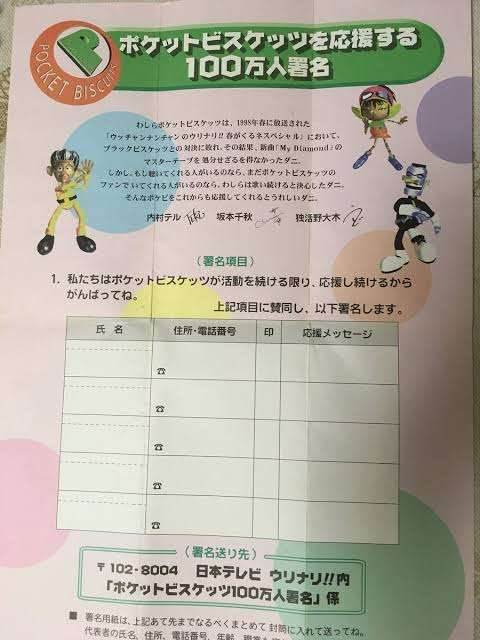 POCKET BISCUITS
ポケットビスケッツを応援する
100万人署名
わしらポケットビスケッツは、1998年春に放送された
「ウッチャンナンチャンのウリナリ!!春がくるネスペシャル」において、
ブラックビスケッツとの対決に敗れ、その結果、新曲「My Diamond」の
マスターテープを処分せざるを得なかったダニ。
しかし、もし聴いてくれる人がいるのなら、まだポケットビスケッツの
ファンでいてくれる人がいるのなら、わしらは歌い続けると決心したダニ。
そんなポケビをこれからも応援してくれるとうれしいダニ。
内村テル 坂本千秋 独活野大木
(署名項目)
1. 私たちはポケットビスケッツが活動を続ける限り、応援し続けるから
がんばってね。
上記項目に賛同し、以下署名します。
氏名 住所・電話番号 印 応援メッセージ
☎
☎
☎
☎
☎
(署名送り先)
〒102-8004 日本テレビ ウリナリ!!内
「ポケットビスケッツ100万人署名」係
■ 署名用紙は、上記あて先までなるべくまとめて封筒に入れて送ってね。
代表者の氏名、住所、電話番号、年齢、職業